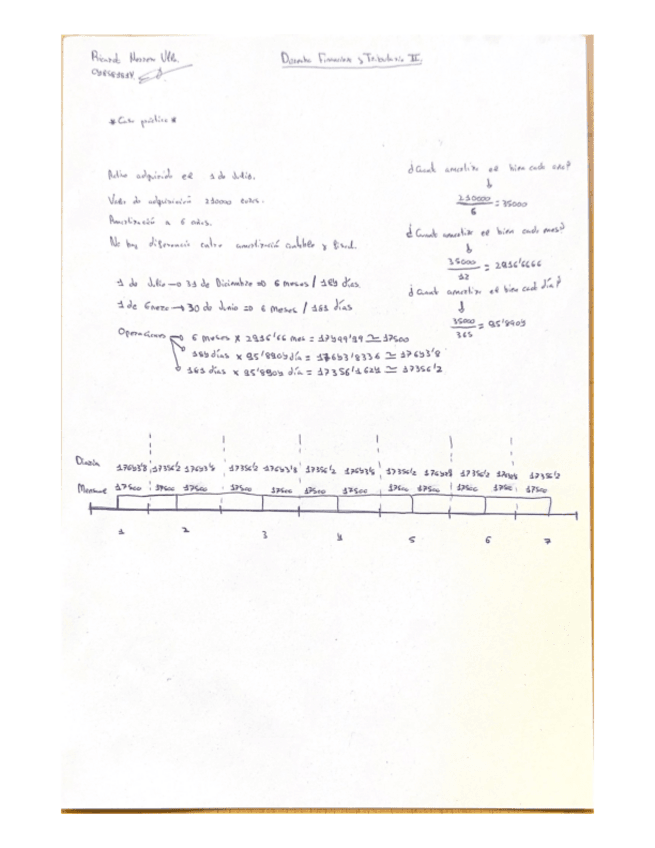 Derecho Financiero y Tributario II.
* Caso práctico *
Activo adquirido el 1 de Julio.
Valor de adquisición 210000 euros.
Amortización a 6 años.
No hay diferencia entre amortización contable y fiscal.
1 de Julio → 31 de Diciembre ⇒ 6 meses / 184 días
1 de Enero → 30 de Junio ⇒ 6 meses / 181 días
Operaciones → 6 meses x 2916'66 mes = 17499'99 ≃ 17500
184 días x 95'8904 día = 17643'8336 ≃ 17643'8
181 días x 95'8904 día = 17356'1624 ≃ 17356'2
¿Cuanto amortiza el bien cada año?
210000 / 6 = 35000
¿Cuanto amortiza el bien cada mes?
35000 / 12 = 2916'6666
¿Cuanto amortiza el bien cada día?
35000 / 365 = 95'8904
Diaria 17643'8 17356'2 17643'8 17356'2 17643'8 17356'2 17643'8 17356'2 17643'8 17356'2 17643'8 17356'2
Mensual 17500 17500 17500 17500 17500 17500 17500 17500 17500 17500 17500 17500
1 2 3 4 5 6 7